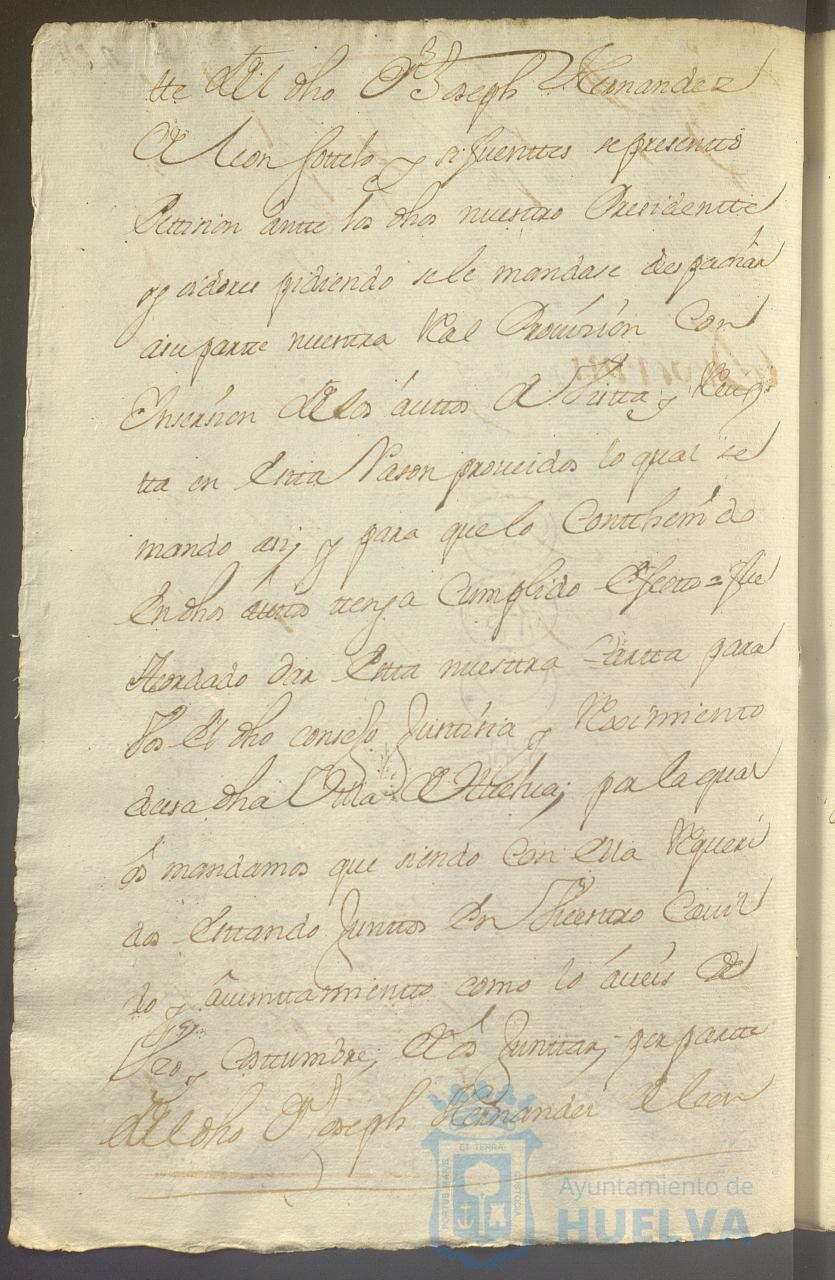 tte del dho Dn Joseph Hernandez
de leon sottelo y sifuenttes se presentto
Pettision antte los dhos nuestro Presidentte
y oidores pidiendo se le mandase despachar
a su partte nuestra Real Provision con
Insersion de los auttos de Vistta y Revis
ta en estta Rason proveidos lo qual se
mando asi, y para que lo Contthenido
en dhos auttos ttenga Cumplido efecto = fue
Acordado dar estta nuestra Cartta para
Vos el dho consejo Justtisia y Reximiento
de esa dha Villa de Huelva; por la qual
os mandamos que siendo con ella Requeri
dos esttando Junttos en Vuestro Cavil
lo y aiunttamientto como lo aveis de
Uso y Costtumbre, de os Junttar, por partte
del dho Dn Joseph Hernandez de leon
PORTUS MARIS
ET TERRA
CUSTODIA
Ayuntamiento de
HUELVA